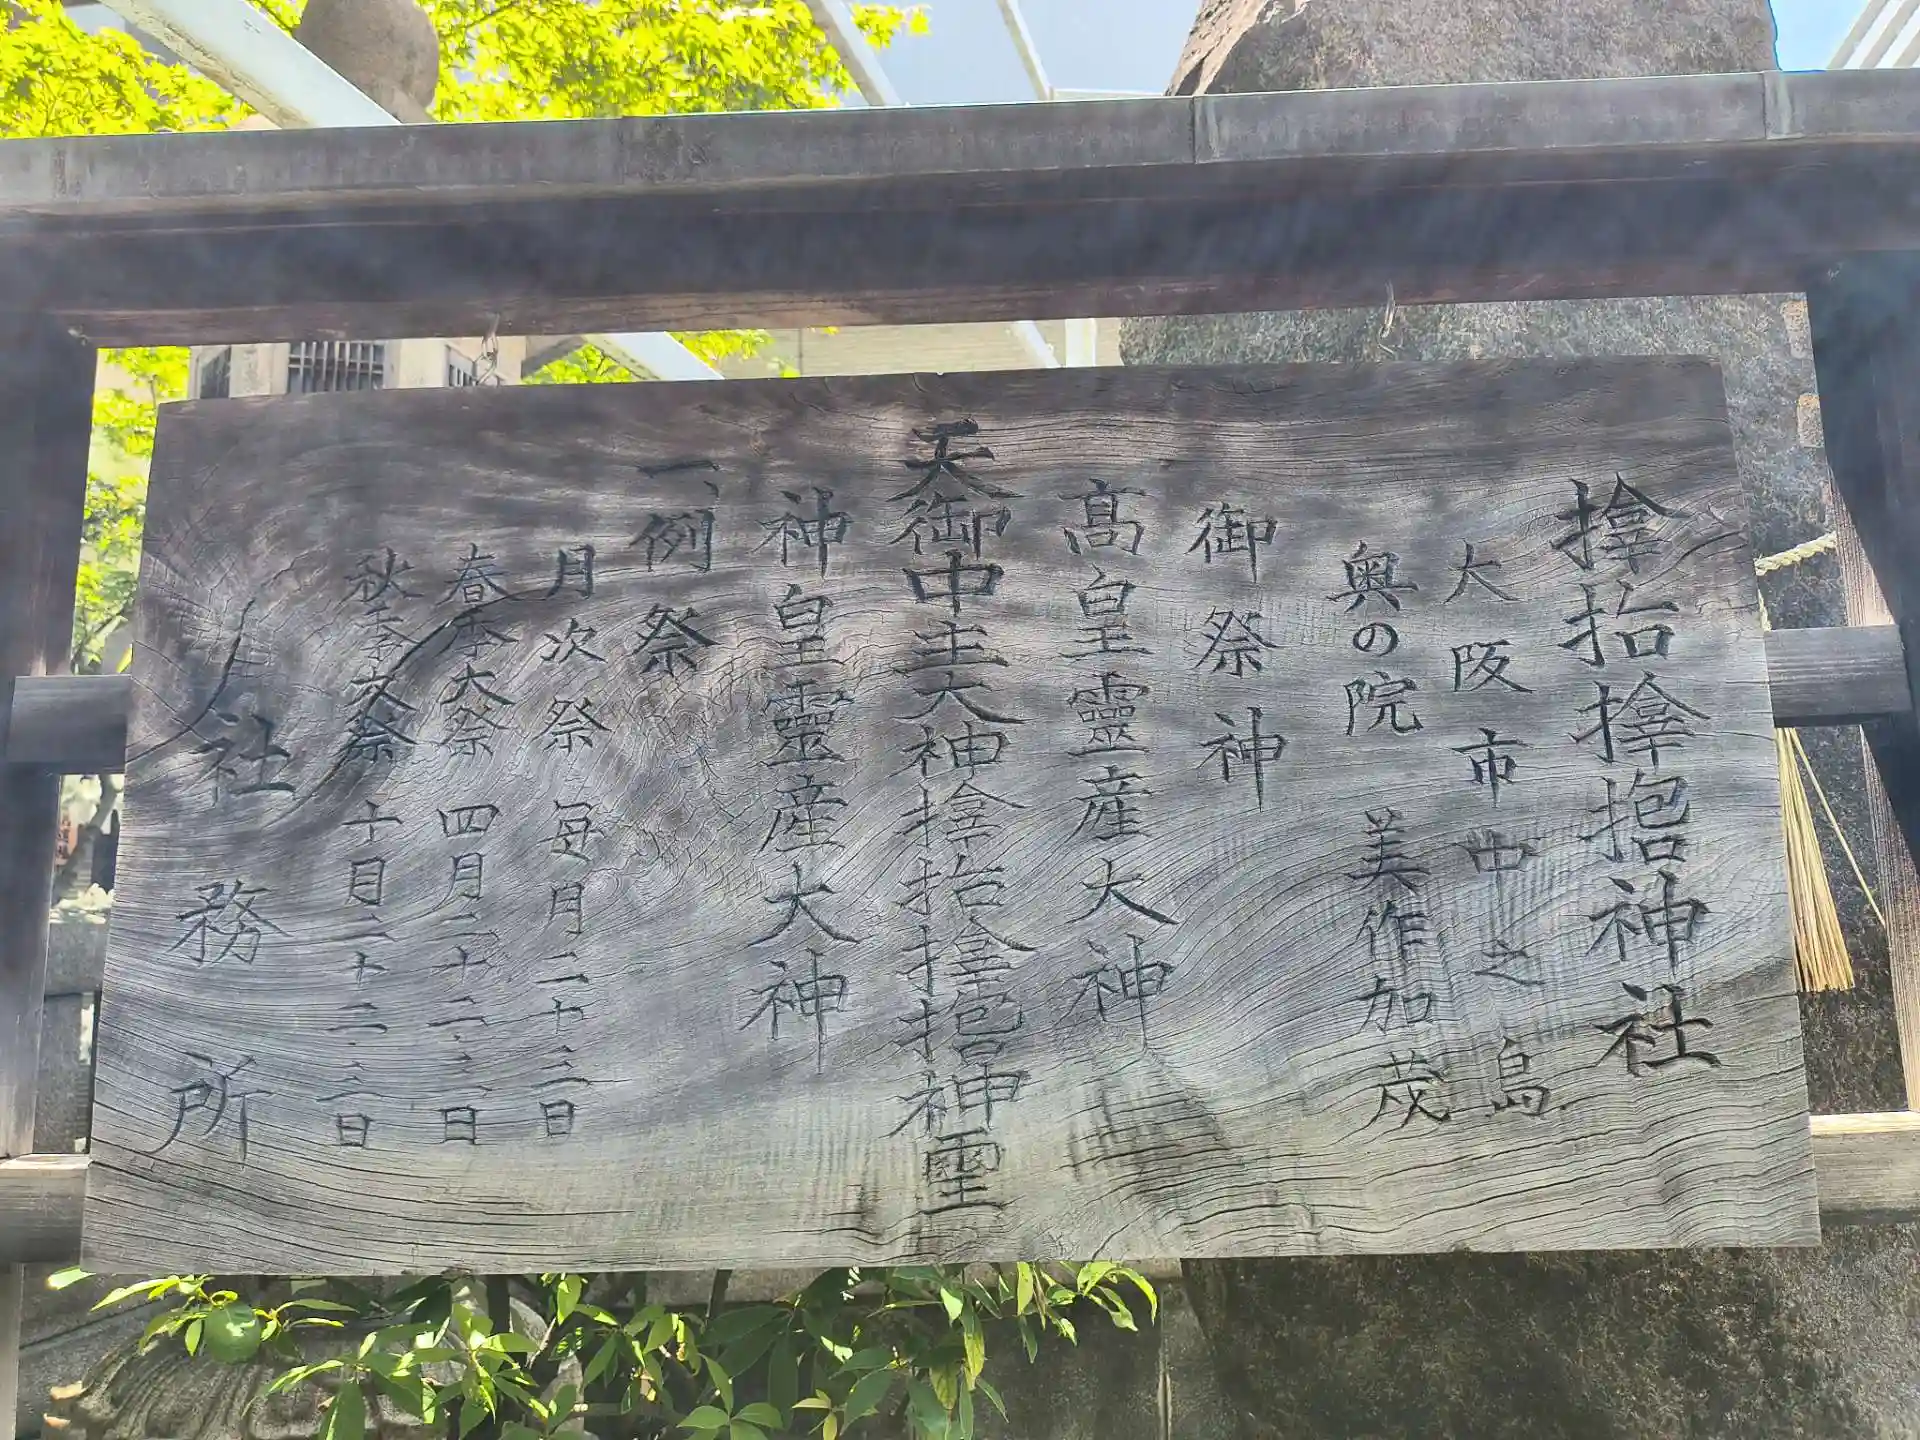 𪮷𫝼𪮷𫝶神社
大阪市中之島
奥の院 美作加茂
御祭神
髙皇靈産大神
天御中主大神𪮷𫝼𪮷𫝶神
神皇靈産大神
一、例祭
月次祭 毎月二十三日
春季大祭 四月二十二・三日
秋季大祭 十月二十二・三日
社務所